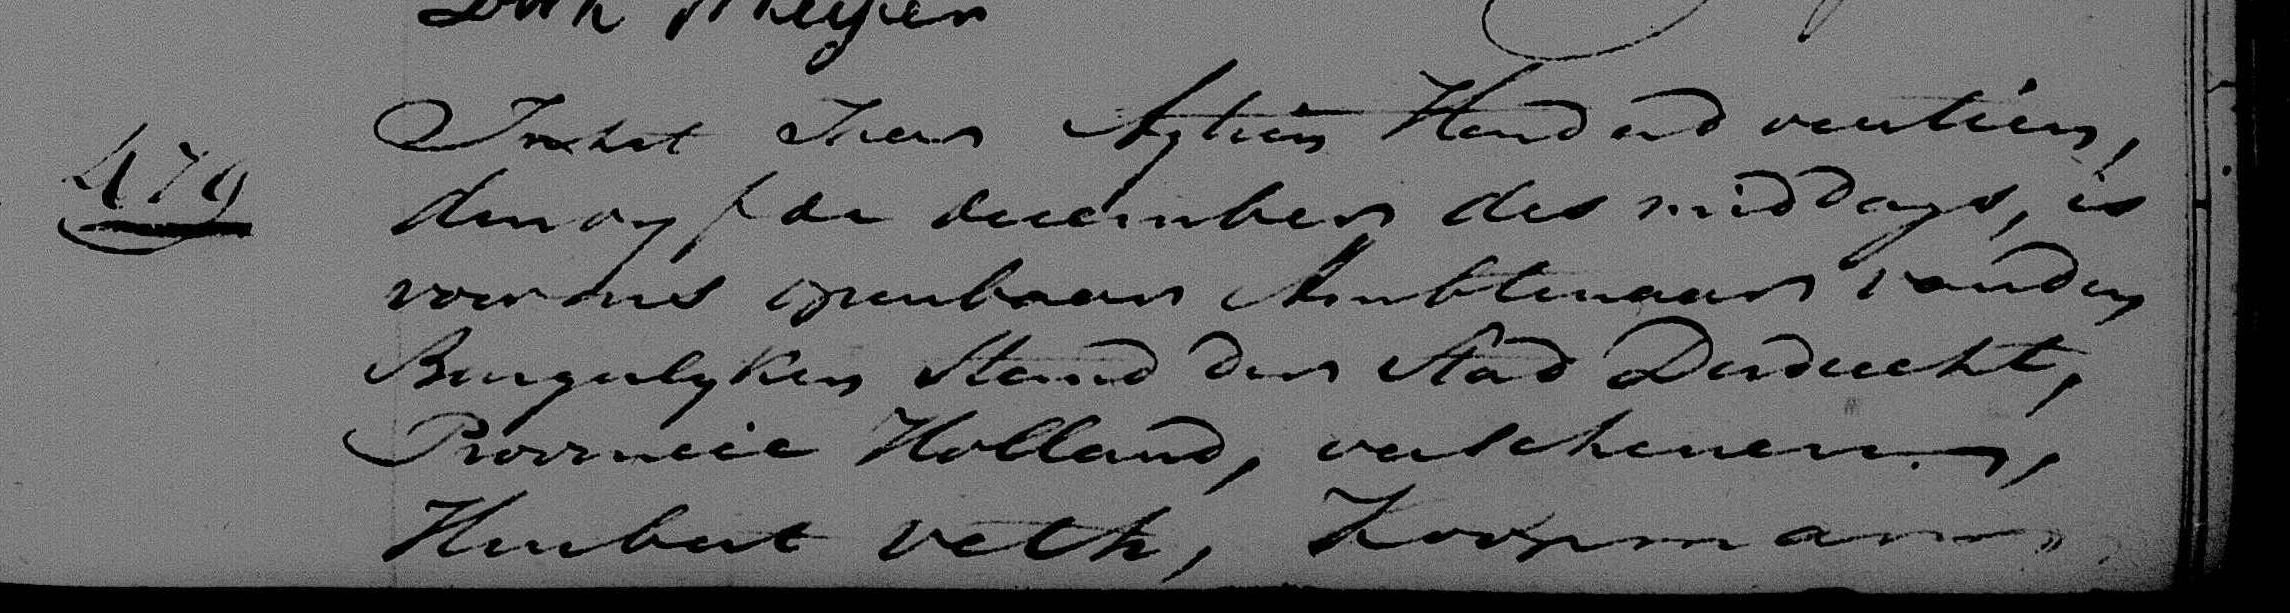 Dirk Meijer
479
In het Jaar Agtien Honderd veertien,
den vyfde december des middags, is
voor ons openbaar Ambtenaar van den
Burgerlyken Stand der Stad Dordrecht,
Provincie Holland, verschenen,
Huibert Veth, Koopman